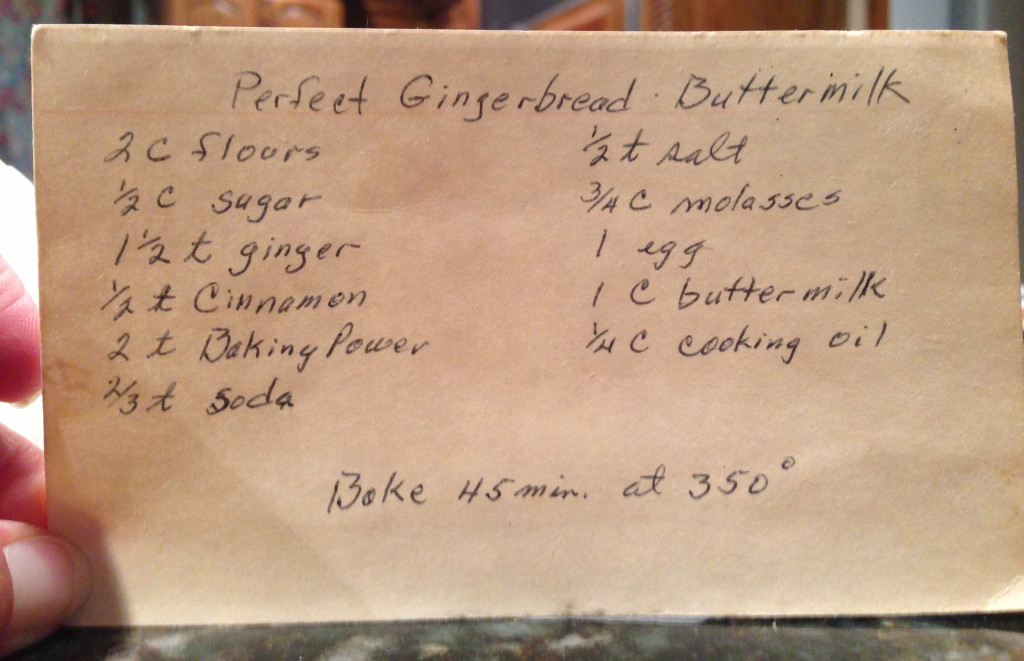 Perfect Gingerbread - Buttermilk
2 C flours
1/2 C sugar
1 1/2 t ginger
1/2 t Cinnamon
2 t Baking Power
2/3 t soda
1/2 t salt
3/4 C molasses
1 egg
1 C buttermilk
1/4 C cooking oil
Bake 45 min. at 350°